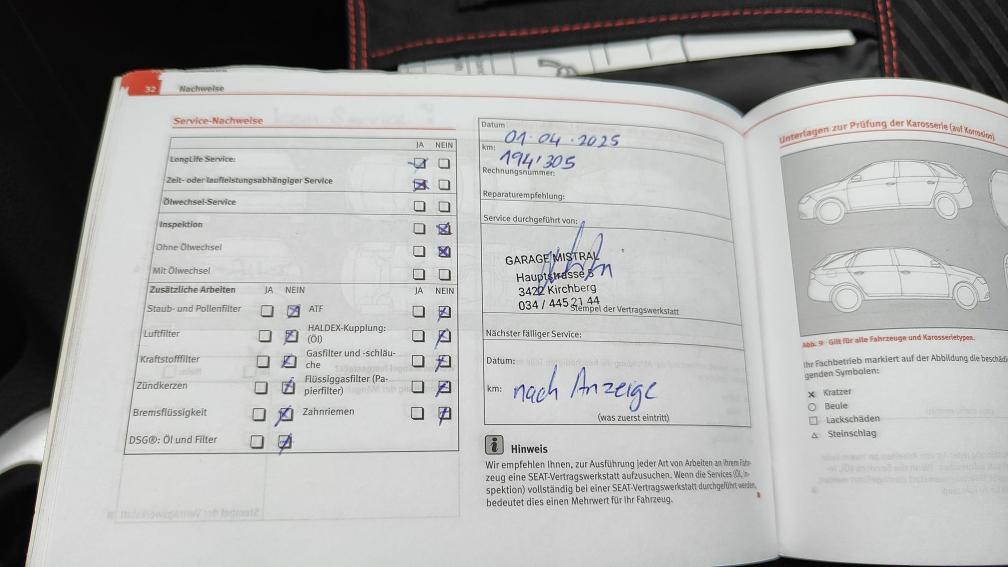 32 Nachweise
Service-Nachweise
JA NEIN
LongLife Service:
Zeit- oder laufleistungsabhängiger Service
Ölwechsel-Service
Inspektion
Ohne Ölwechsel
Mit Ölwechsel
Zusätzliche Arbeiten JA NEIN JA NEIN
Staub- und Pollenfilter ATF
Luftfilter HALDEX-Kupplung:
(Öl)
Kraftstofffilter Gasfilter und -schläu-
che
Zündkerzen Flüssiggasfilter (Pa-
pierfilter)
Bremsflüssigkeit Zahnriemen
DSG®: Öl und Filter
Datum
01.04.2025
km:
194'305
Rechnungsnummer:
Reparaturempfehlung:
Service durchgeführt von:
GARAGE MISTRAL
Hauptstrasse 5
3422 Kirchberg
034 / 445 21 44
Stempel der Vertragswerkstatt
Nächster fälliger Service:
Datum:
km: nach Anzeige
(was zuerst eintritt)
Hinweis
Wir empfehlen Ihnen, zur Ausführung jeder Art von Arbeiten an Ihrem Fahr-
zeug eine SEAT-Vertragswerkstatt aufzusuchen. Wenn die Services (Öl, In-
spektion) vollständig bei einer SEAT-Vertragswerkstatt durchgeführt werden,
bedeutet dies einen Mehrwert für Ihr Fahrzeug.
Unterlagen zur Prüfung der Karosserie (auf Korrosion)
Abb. 9 Gilt für alle Fahrzeuge und Karosserietypen.
Ihr Fachbetrieb markiert auf der Abbildung die beschädi
genden Symbolen:
Kratzer
Beule
Lackschäden
Steinschlag